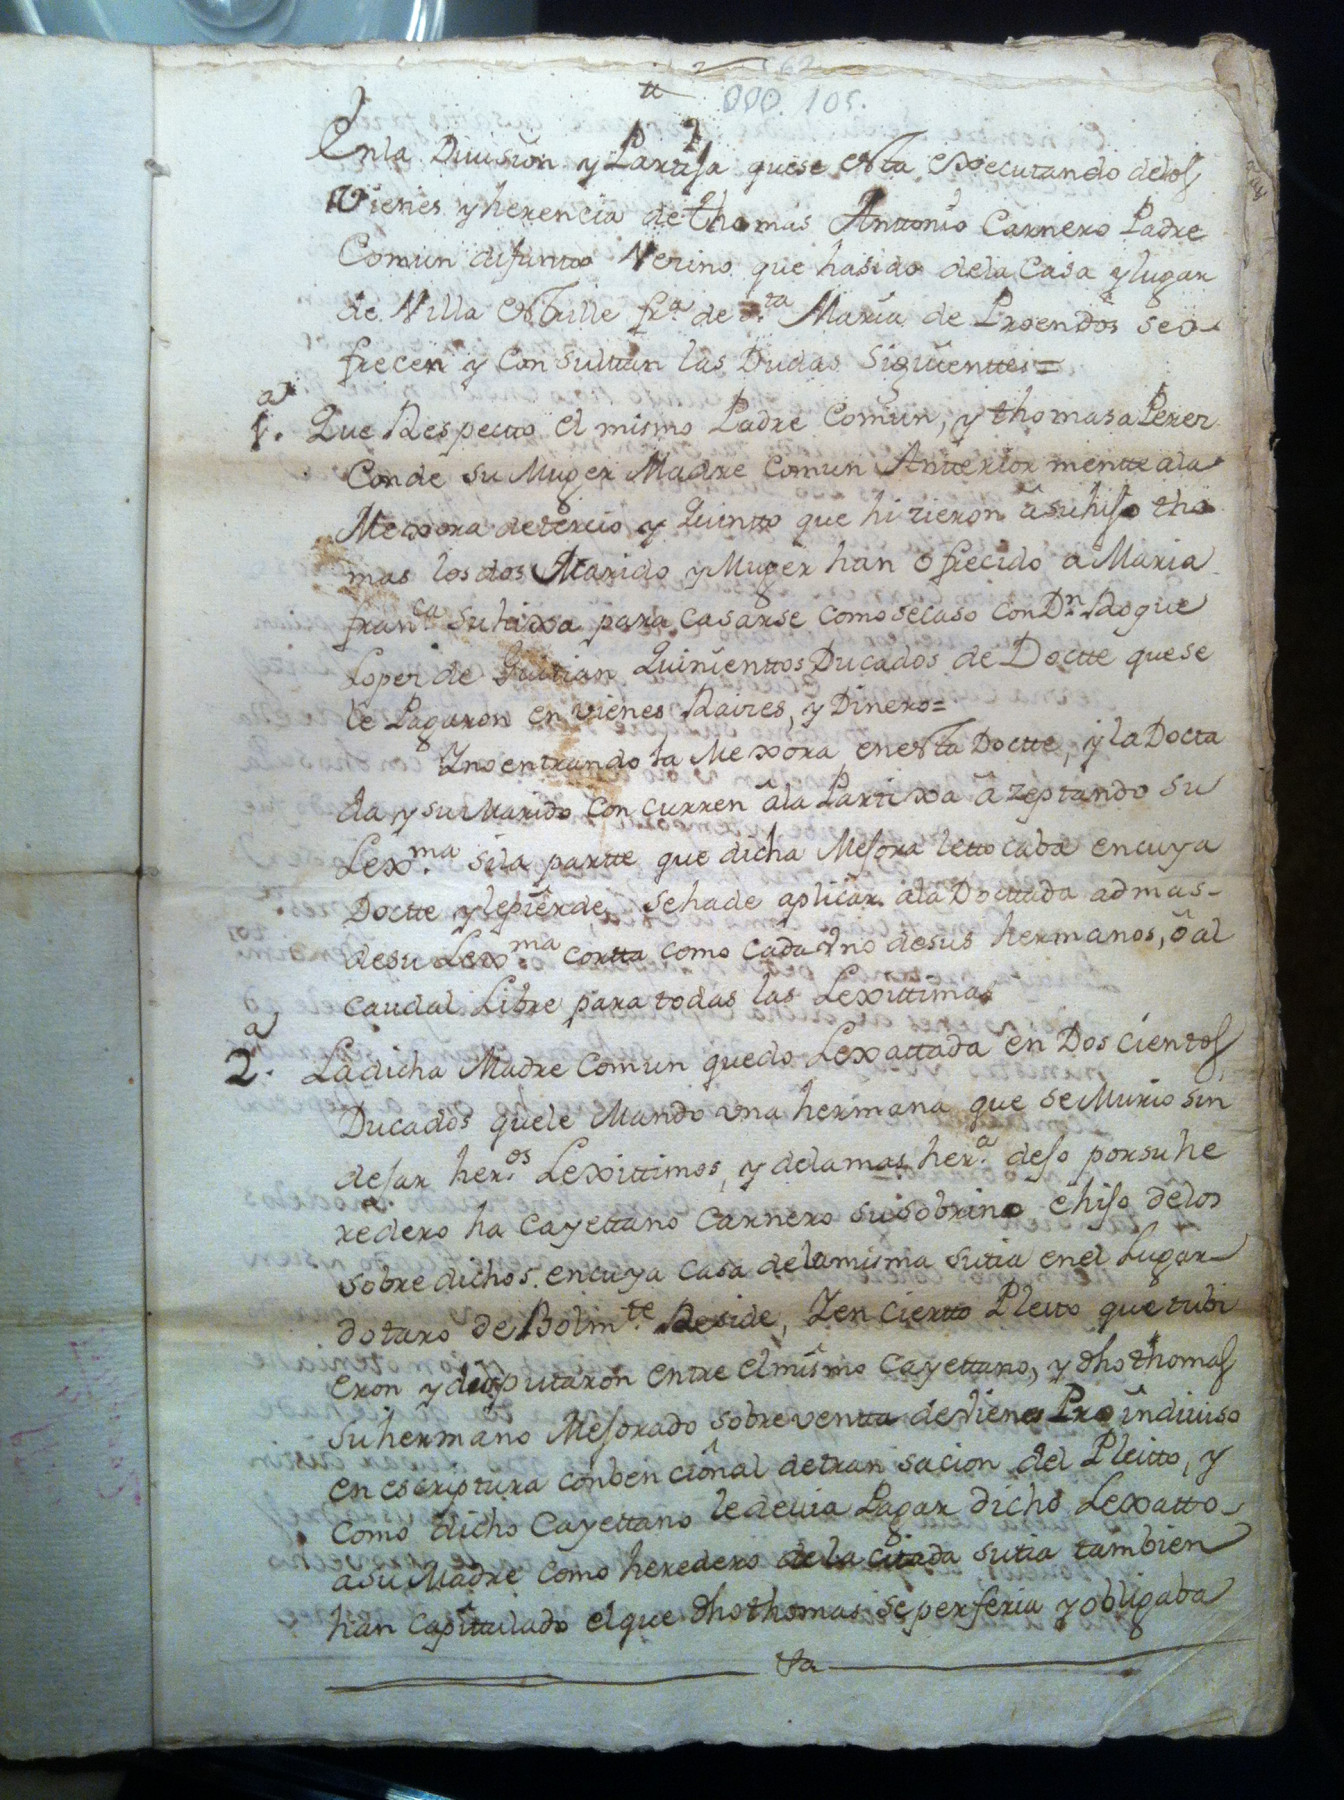 62
tt
000 105.
En la Diuision y Partija que se esta executando de los
Vienes y herencia de thomas Anttonio Carnero Padre
Comun difuntto Vezino que ha sido de la Casa y lugar
de Villa Esttille fra. de sta Maria de Proendos se o-
frecen y Consulttan las Dudas Siguienttes=
1.a Que Respectto el mismo Padre Comun, y thomasa Perez
Conde su Muger Madre Comun Antteriormentte a la
Mexora de tercio y Quintto que hizieron a su hijo tho
mas los dos Marido y Muger han ofrecido a Maria
franca. su hixa para casarse como se caso con Dn. Roque
Lopez de Guitian Quinienttos Ducados de Doctte que se
le Pagaron en vienes Raizes, y Dinero=
Y no entrando la Mexora en esta Doctte, y la Docta
da y su Marido concurren a la Partixa azeptando su
Lexma. si la partte que dicha Mejora le ttocaba en cuya
Doctte y le pierde, se ha de aplicar a la Docttada admas-
de su Lexma. cortta como cada Vno de sus hermanos, o al
caudal Libre para todas las Lexittimas
2.a La dicha Madre Comun quedo Lexattada en Dos cientos
Ducados que le Mando vna hermana que se Murio sin
dejar heros. Lexittimos, y de la mas hera. dejo por su he
redero ha Cayettano Carnero su sobrino e hijo de los
sobre dichos. en cuya casa de la misma su tia en el Lugar-
do taro de Bolmte. Reside, Y en Ciertto Pleito que tubi
eron y disputaron entre el mismo Cayettano, y dho thomas
su hermano Mejorado sobre ventta de Vienes Pro indiuiso
en escriptura conbencional de transacion del Pleitto, y
como dicho Cayettano le deuia Pagar dicho Lexatto-
a su Madre como heredero de la citada su tia tambien
han Capittulado el que dho thomas se perferia y obligaba